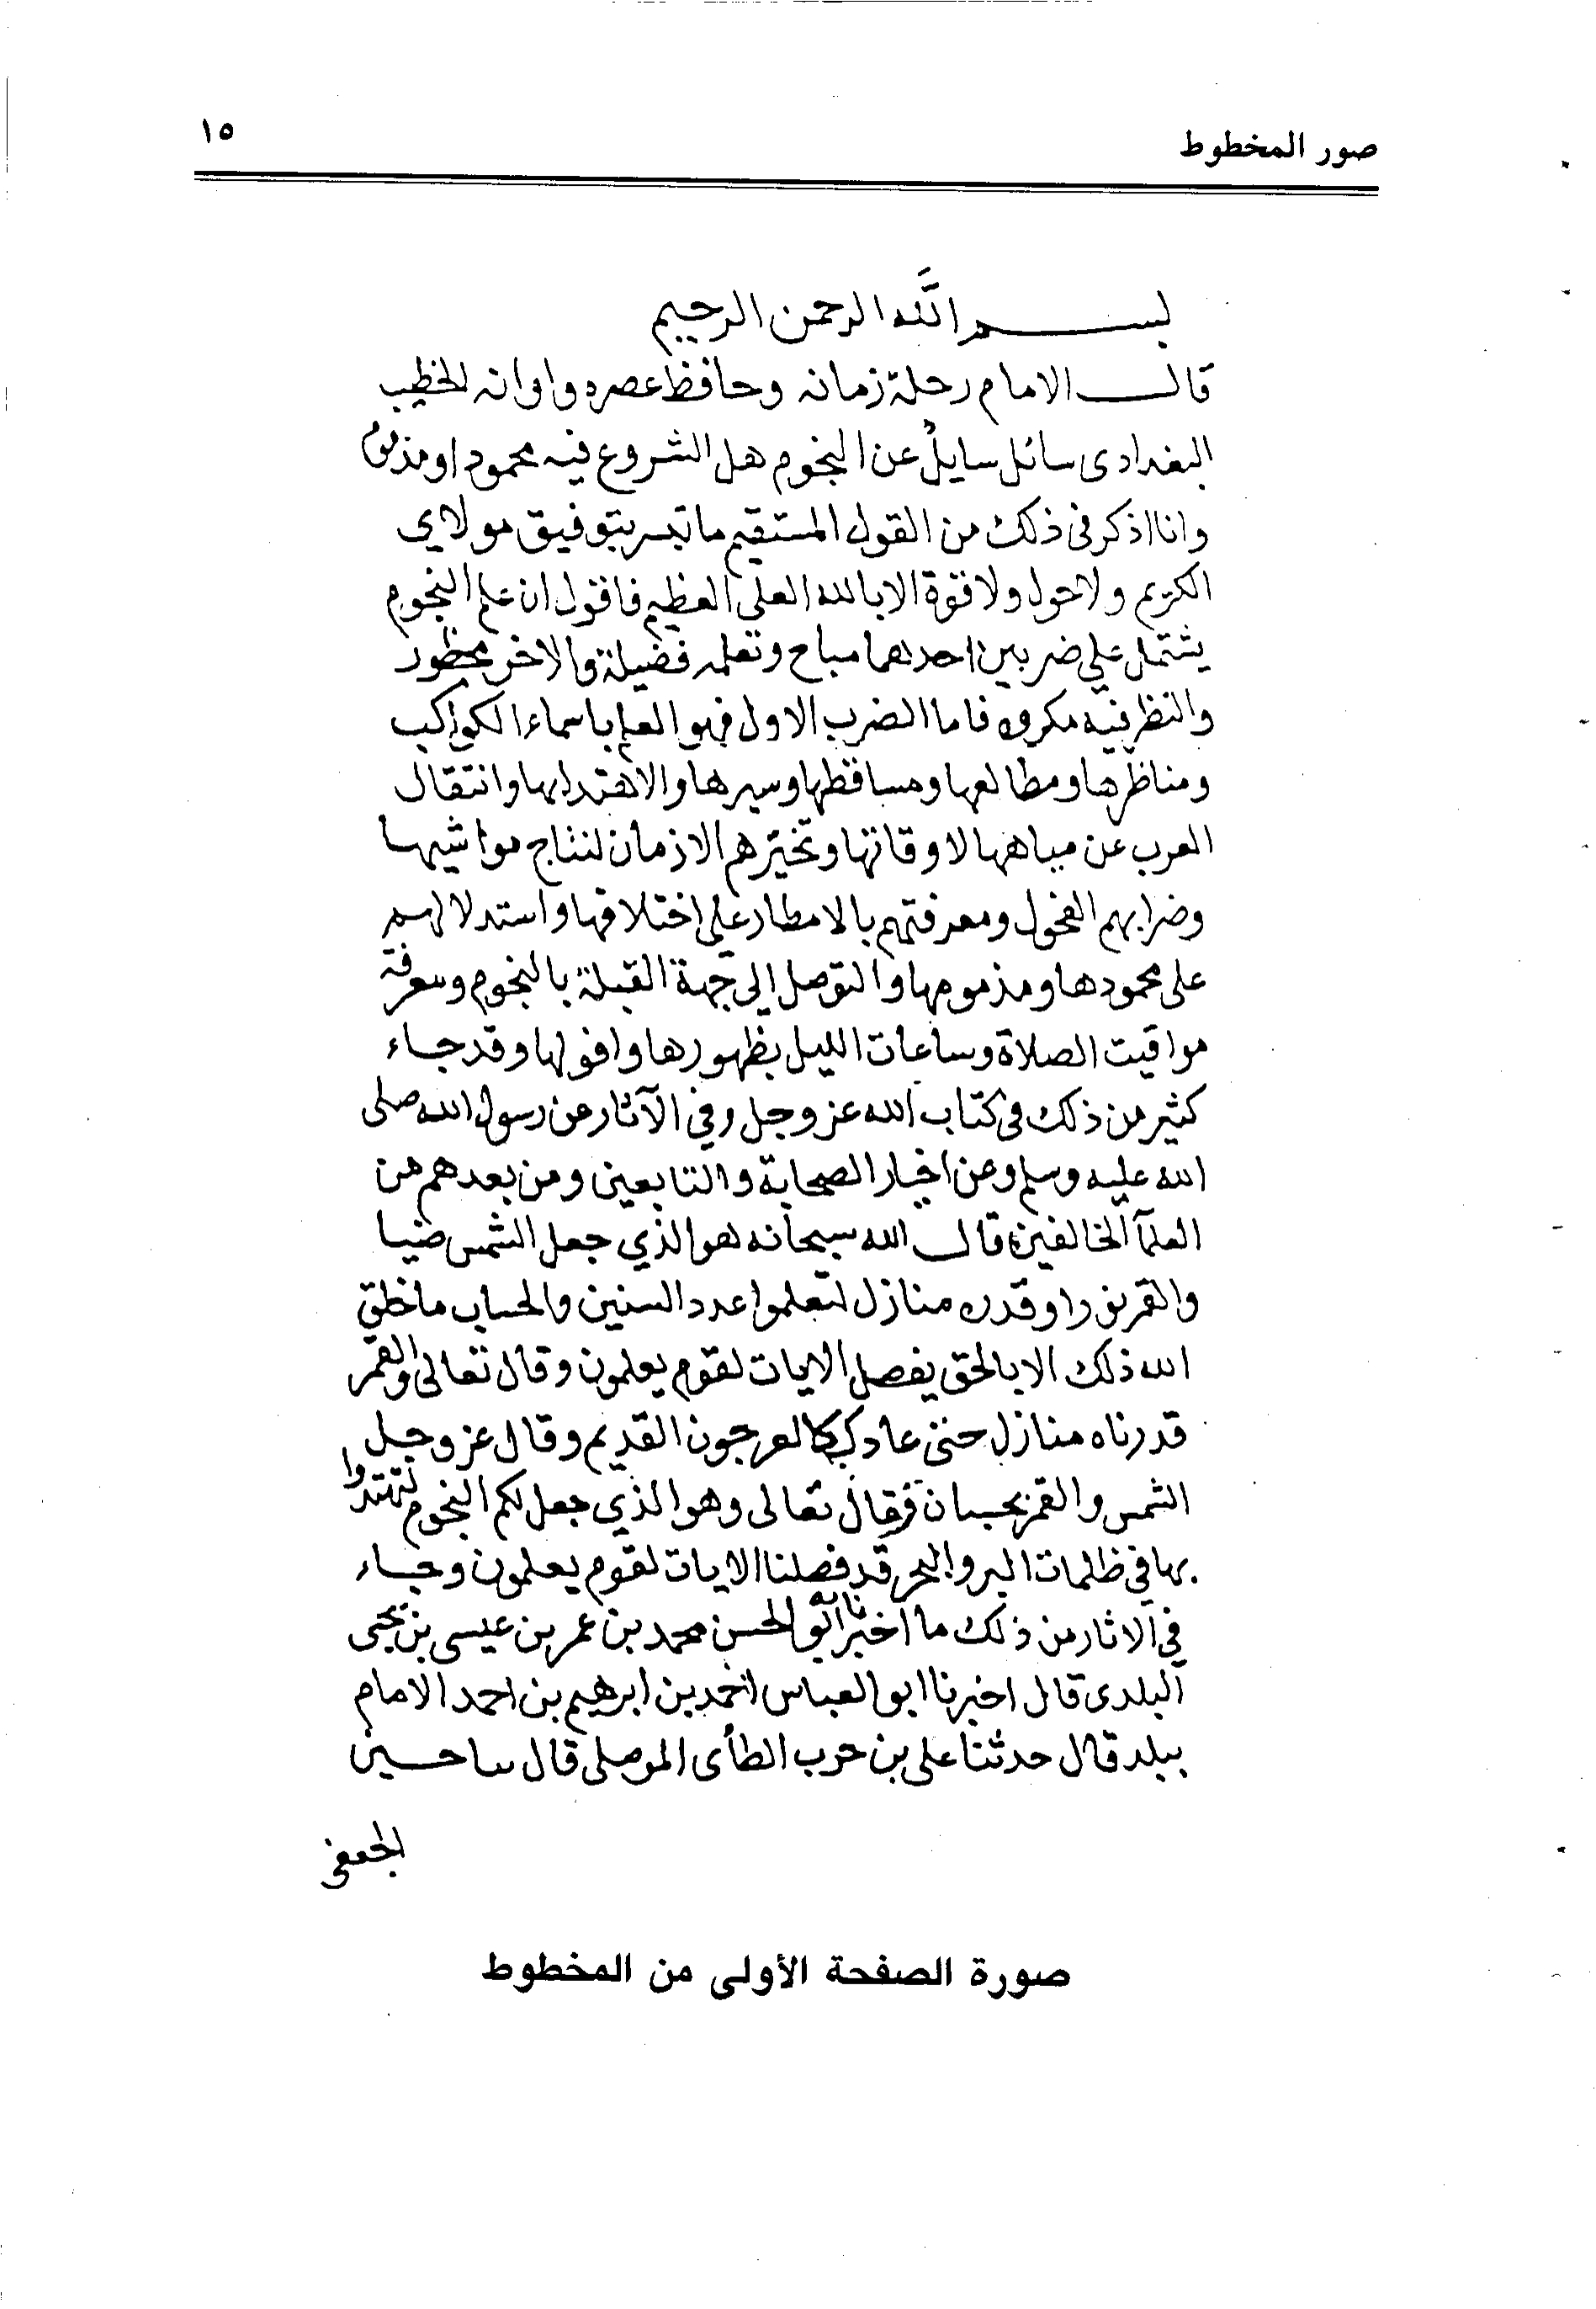 صور المخطوط
١٥
بسم الله الرحمن الرحيم
قال الامام رحلة زمانه وحافظ عصره واوانه الخطيب
البغدادى سائل سايل عن النجوم هل الشروع فيه محمود او مذموم
وانا اذكر فى ذلك من القول المستقيم ما تيسر بتوفيق مولاي
الكريم ولا حول ولا قوة الا بالله العلي العظيم فاقول ان علم النجوم
يشتمل علي ضربين احدهما مباح وتعلمه فضيلة والاخر محظور
والنظر فيه مكروه فاما الضرب الاول فهو العلم باسماء الكواكب
ومناظرها ومطالعها ومساقطها وسيرها والاهتدا بها وانتقال
العرب عن مياهها لاوقاتها وتخيرهم الازمان لنتاج مواشيها
وضرابهم الفحول ومعرفتهم بالامطار علي اختلافها واستدلالهم
على محمودها ومذمومها والتوصل الى جهة القبلة بالنجوم ومعرفة
مواقيت الصلاة وساعات الليل بظهورها وافولها وقد جاء
كثير من ذلك فى كتاب الله عز وجل وفي الآثار عن رسول الله صلى
الله عليه وسلم وعن اخيار الصحابة والتابعين ومن بعدهم من
العلمآ الخالفين قال الله سبحانه هو الذي جعل الشمس ضيا
والقمر نورا وقدره منازل لتعلموا عدد السنين والحساب ما خلق
الله ذلك الا بالحق يفصل الايات لقوم يعلمون وقال تعالى والقمر
قدرناه منازل حتى عاد كالعرجون القديم وقال عز وجل
الشمس والقمر بحسبان وقال تعالى وهو الذي جعل لكم النجوم لتهتدوا
بها في ظلمات البر والبحر قد فصلنا الايات لقوم يعلمون وجاء
في الاثار من ذلك ما اخبرنا به ابو الحسن محمد بن عمر بن عيسى بن يحيى
البلدى قال اخبرنا ابو العباس احمد بن ابرهيم بن احمد الامام
ببلد قال حدثنا على بن حرب الطأى الموصلى قال سا حسين
الجعفى
صورة الصفحة الأولى من المخطوط